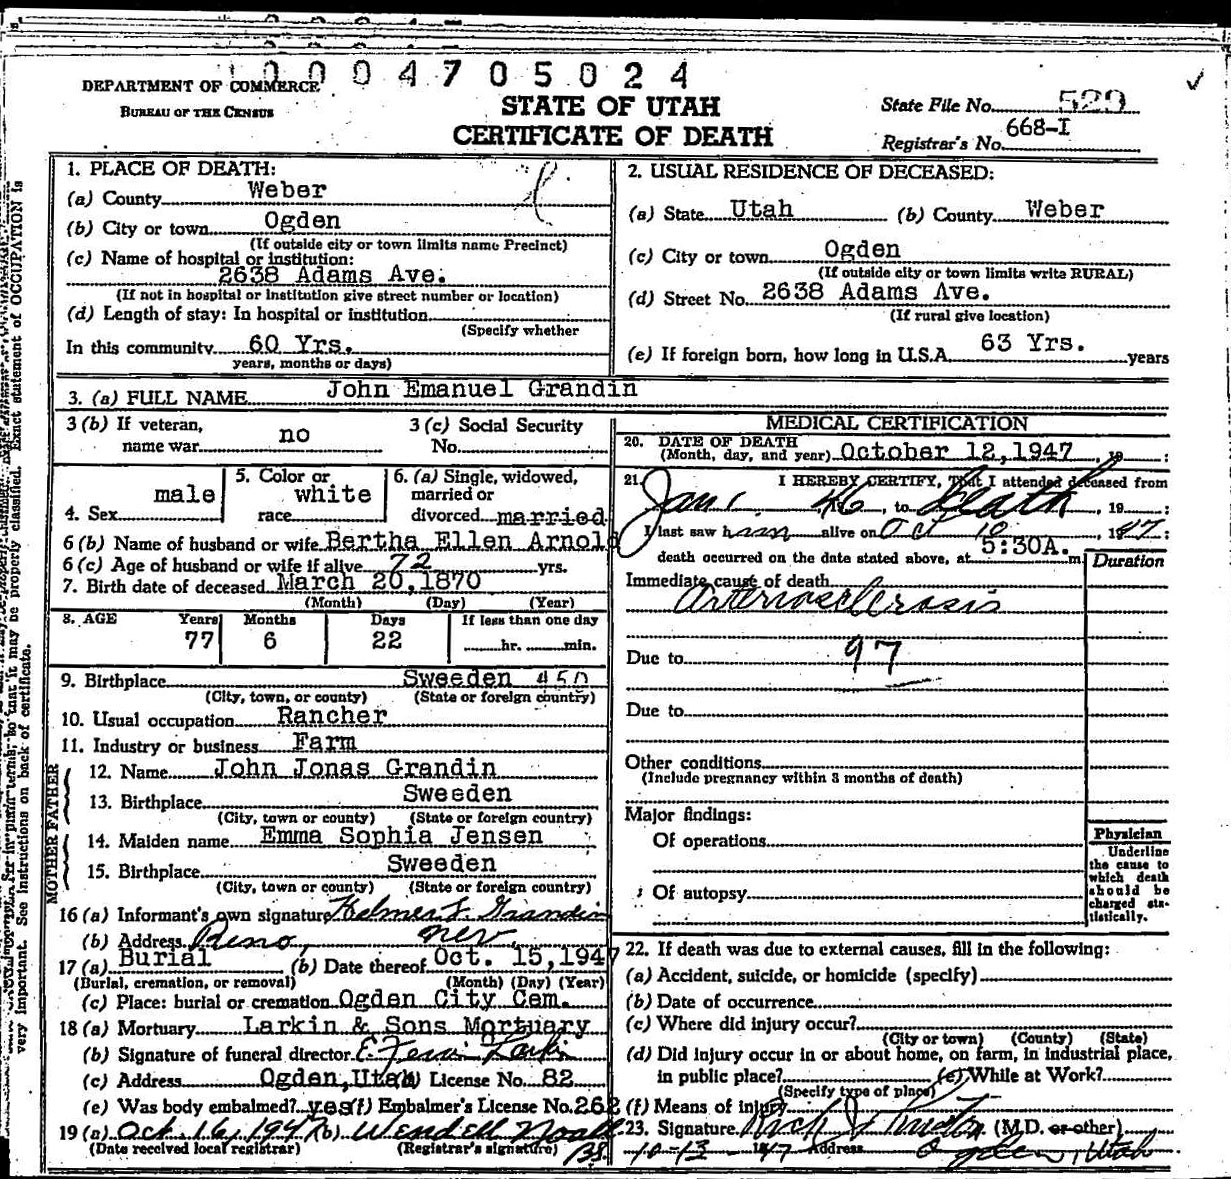 0004705024
DEPARTMENT OF COMMERCE
BUREAU OF THE CENSUS
STATE OF UTAH
CERTIFICATE OF DEATH
State File No. 529
Registrar's No. 668-I
1. PLACE OF DEATH:
(a) County Weber
(b) City or town Ogden
(If outside city or town limits name Precinct)
(c) Name of hospital or institution:
2638 Adams Ave.
(If not in hospital or institution give street number or location)
(d) Length of stay: In hospital or institution
(Specify whether
In this community 60 Yrs.
years, months or days)
2. USUAL RESIDENCE OF DECEASED:
(a) State Utah (b) County Weber
(c) City or town Ogden
(If outside city or town limits write RURAL)
(d) Street No. 2638 Adams Ave.
(If rural give location)
(e) If foreign born, how long in U.S.A. 63 Yrs. years
3. (a) FULL NAME John Emanuel Grandin
3 (b) If veteran, name war no
3 (c) Social Security No.
4. Sex male
5. Color or race white
6. (a) Single, widowed, married or divorced married
6 (b) Name of husband or wife Bertha Ellen Arnold
6 (c) Age of husband or wife if alive 72 yrs.
7. Birth date of deceased March 20, 1870
(Month) (Day) (Year)
8. AGE Years Months Days If less than one day
77 6 22 hr. min.
9. Birthplace Sweeden 450
(City, town, or county) (State or foreign country)
10. Usual occupation Rancher
11. Industry or business Farm
FATHER
12. Name John Jonas Grandin
13. Birthplace Sweeden
(City, town or county) (State or foreign country)
MOTHER
14. Maiden name Emma Sophia Jensen
15. Birthplace Sweeden
(City, town or county) (State or foreign country)
16 (a) Informant's own signature Helmer L. Grandin
(b) Address Reno, Nev.
17 (a) Burial (b) Date thereof Oct. 15, 1947
(Burial, cremation, or removal) (Month) (Day) (Year)
(c) Place: burial or cremation Ogden City Cem.
18 (a) Mortuary Larkin & Sons Mortuary
(b) Signature of funeral director
(c) Address Ogden, Utah (d) License No. 82
(e) Was body embalmed? yes (f) Embalmer's License No. 262
19 (a) Oct 16, 1947 (b) Wendell Noall
(Date received local registrar) (Registrar's signature)
MEDICAL CERTIFICATION
20. DATE OF DEATH
(Month, day, and year) October 12, 1947, 19 :
21. I HEREBY CERTIFY, That I attended deceased from
Jan 1. 46, to Death, 19 :
I last saw him alive on Oct 10, 1947:
death occurred on the date stated above, at 5:30A. m.
Duration
Immediate cause of death
Arteriosclerosis
Due to 97
Due to
Other conditions
(Include pregnancy within 3 months of death)
Major findings:
Of operations
Of autopsy
Physician
Underline the cause to which death should be charged statistically.
22. If death was due to external causes, fill in the following:
(a) Accident, suicide, or homicide (specify)
(b) Date of occurrence
(c) Where did injury occur?
(City or town) (County) (State)
(d) Did injury occur in or about home, on farm, in industrial place,
in public place? (e) While at Work?
(Specify type of place)
(f) Means of injury
23. Signature (M.D. or other)
10-13 1947 Address Ogden, Utah
very important. See instructions on back of certificate.
it may be properly classified. Exact statement of OCCUPATION is